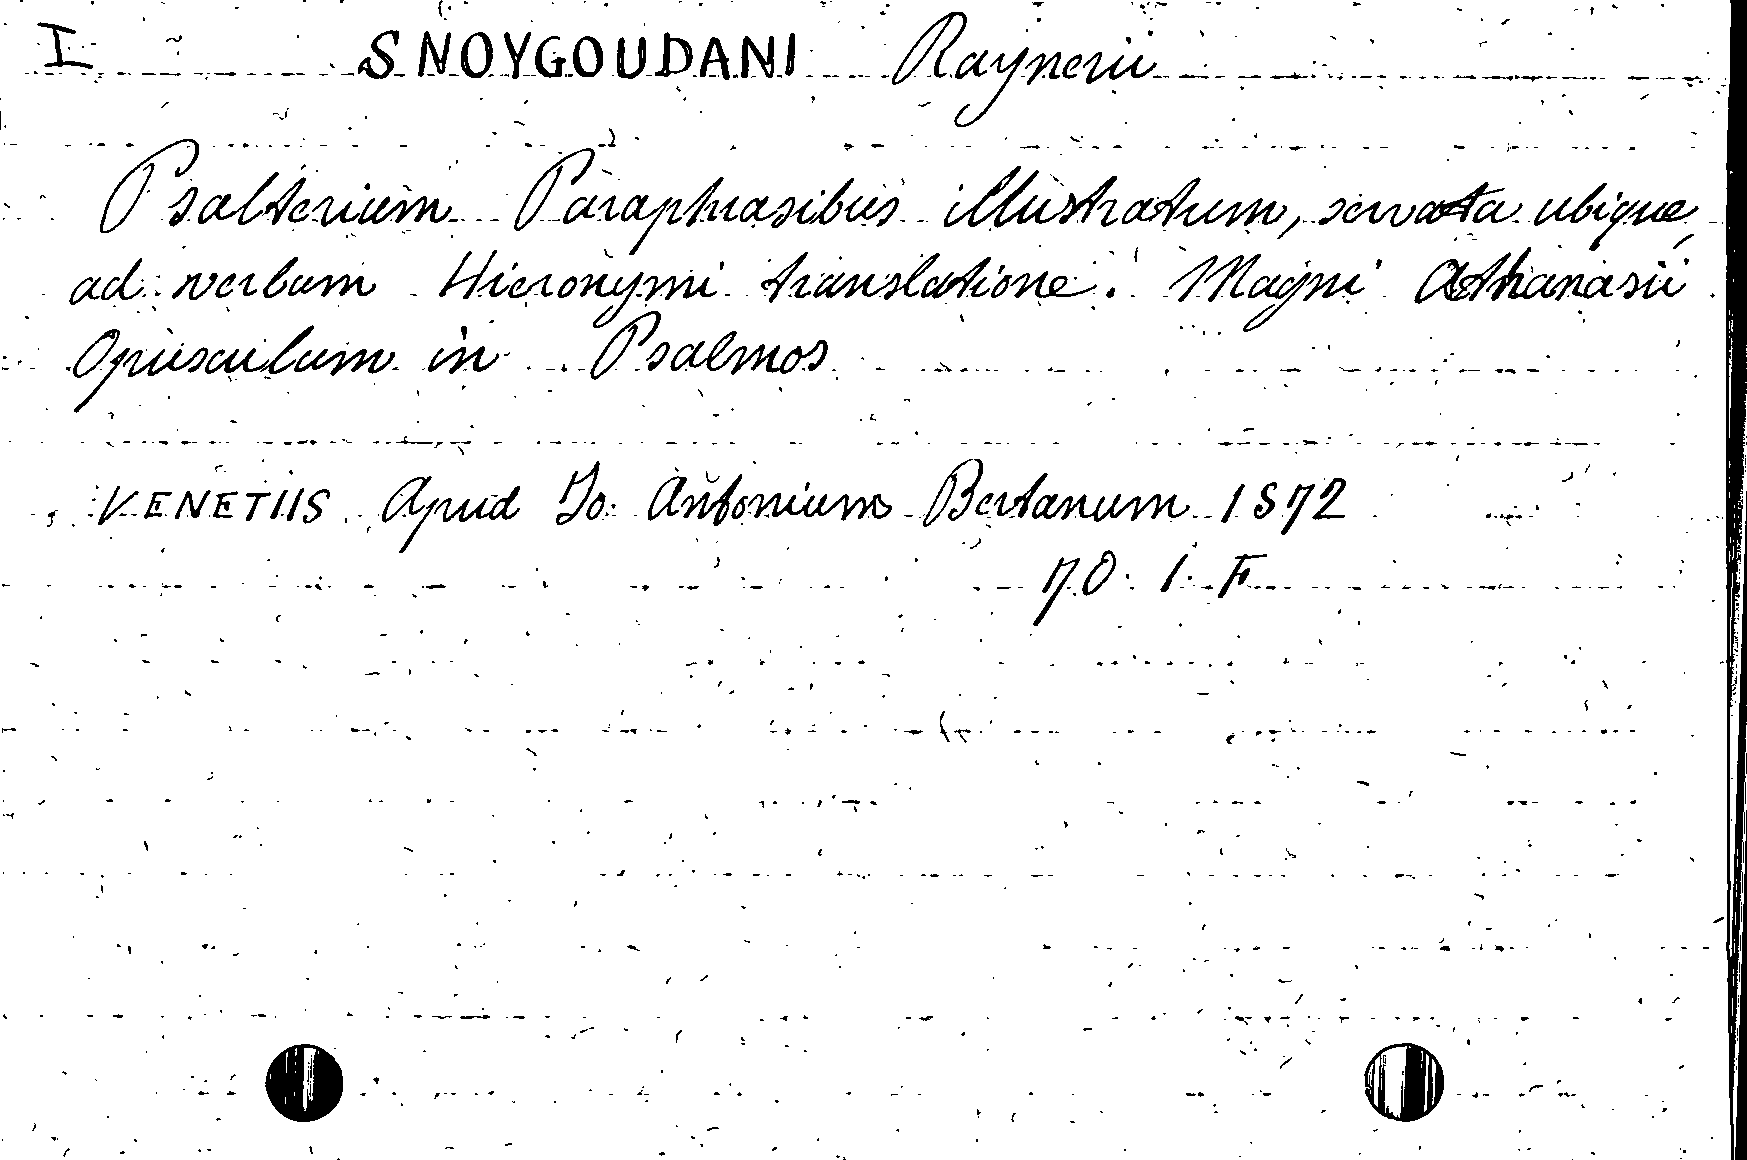 I SNOYGOUDANI Raynerii
Psalterium Paraphrasibus illustratum, servata ubique,
ad verbum Hieronymi translatione. Magni Athanasii
Opusculum in Psalmos
VENETIIS Apud Jo. Antonium Bertanum 1572
70. 1. F